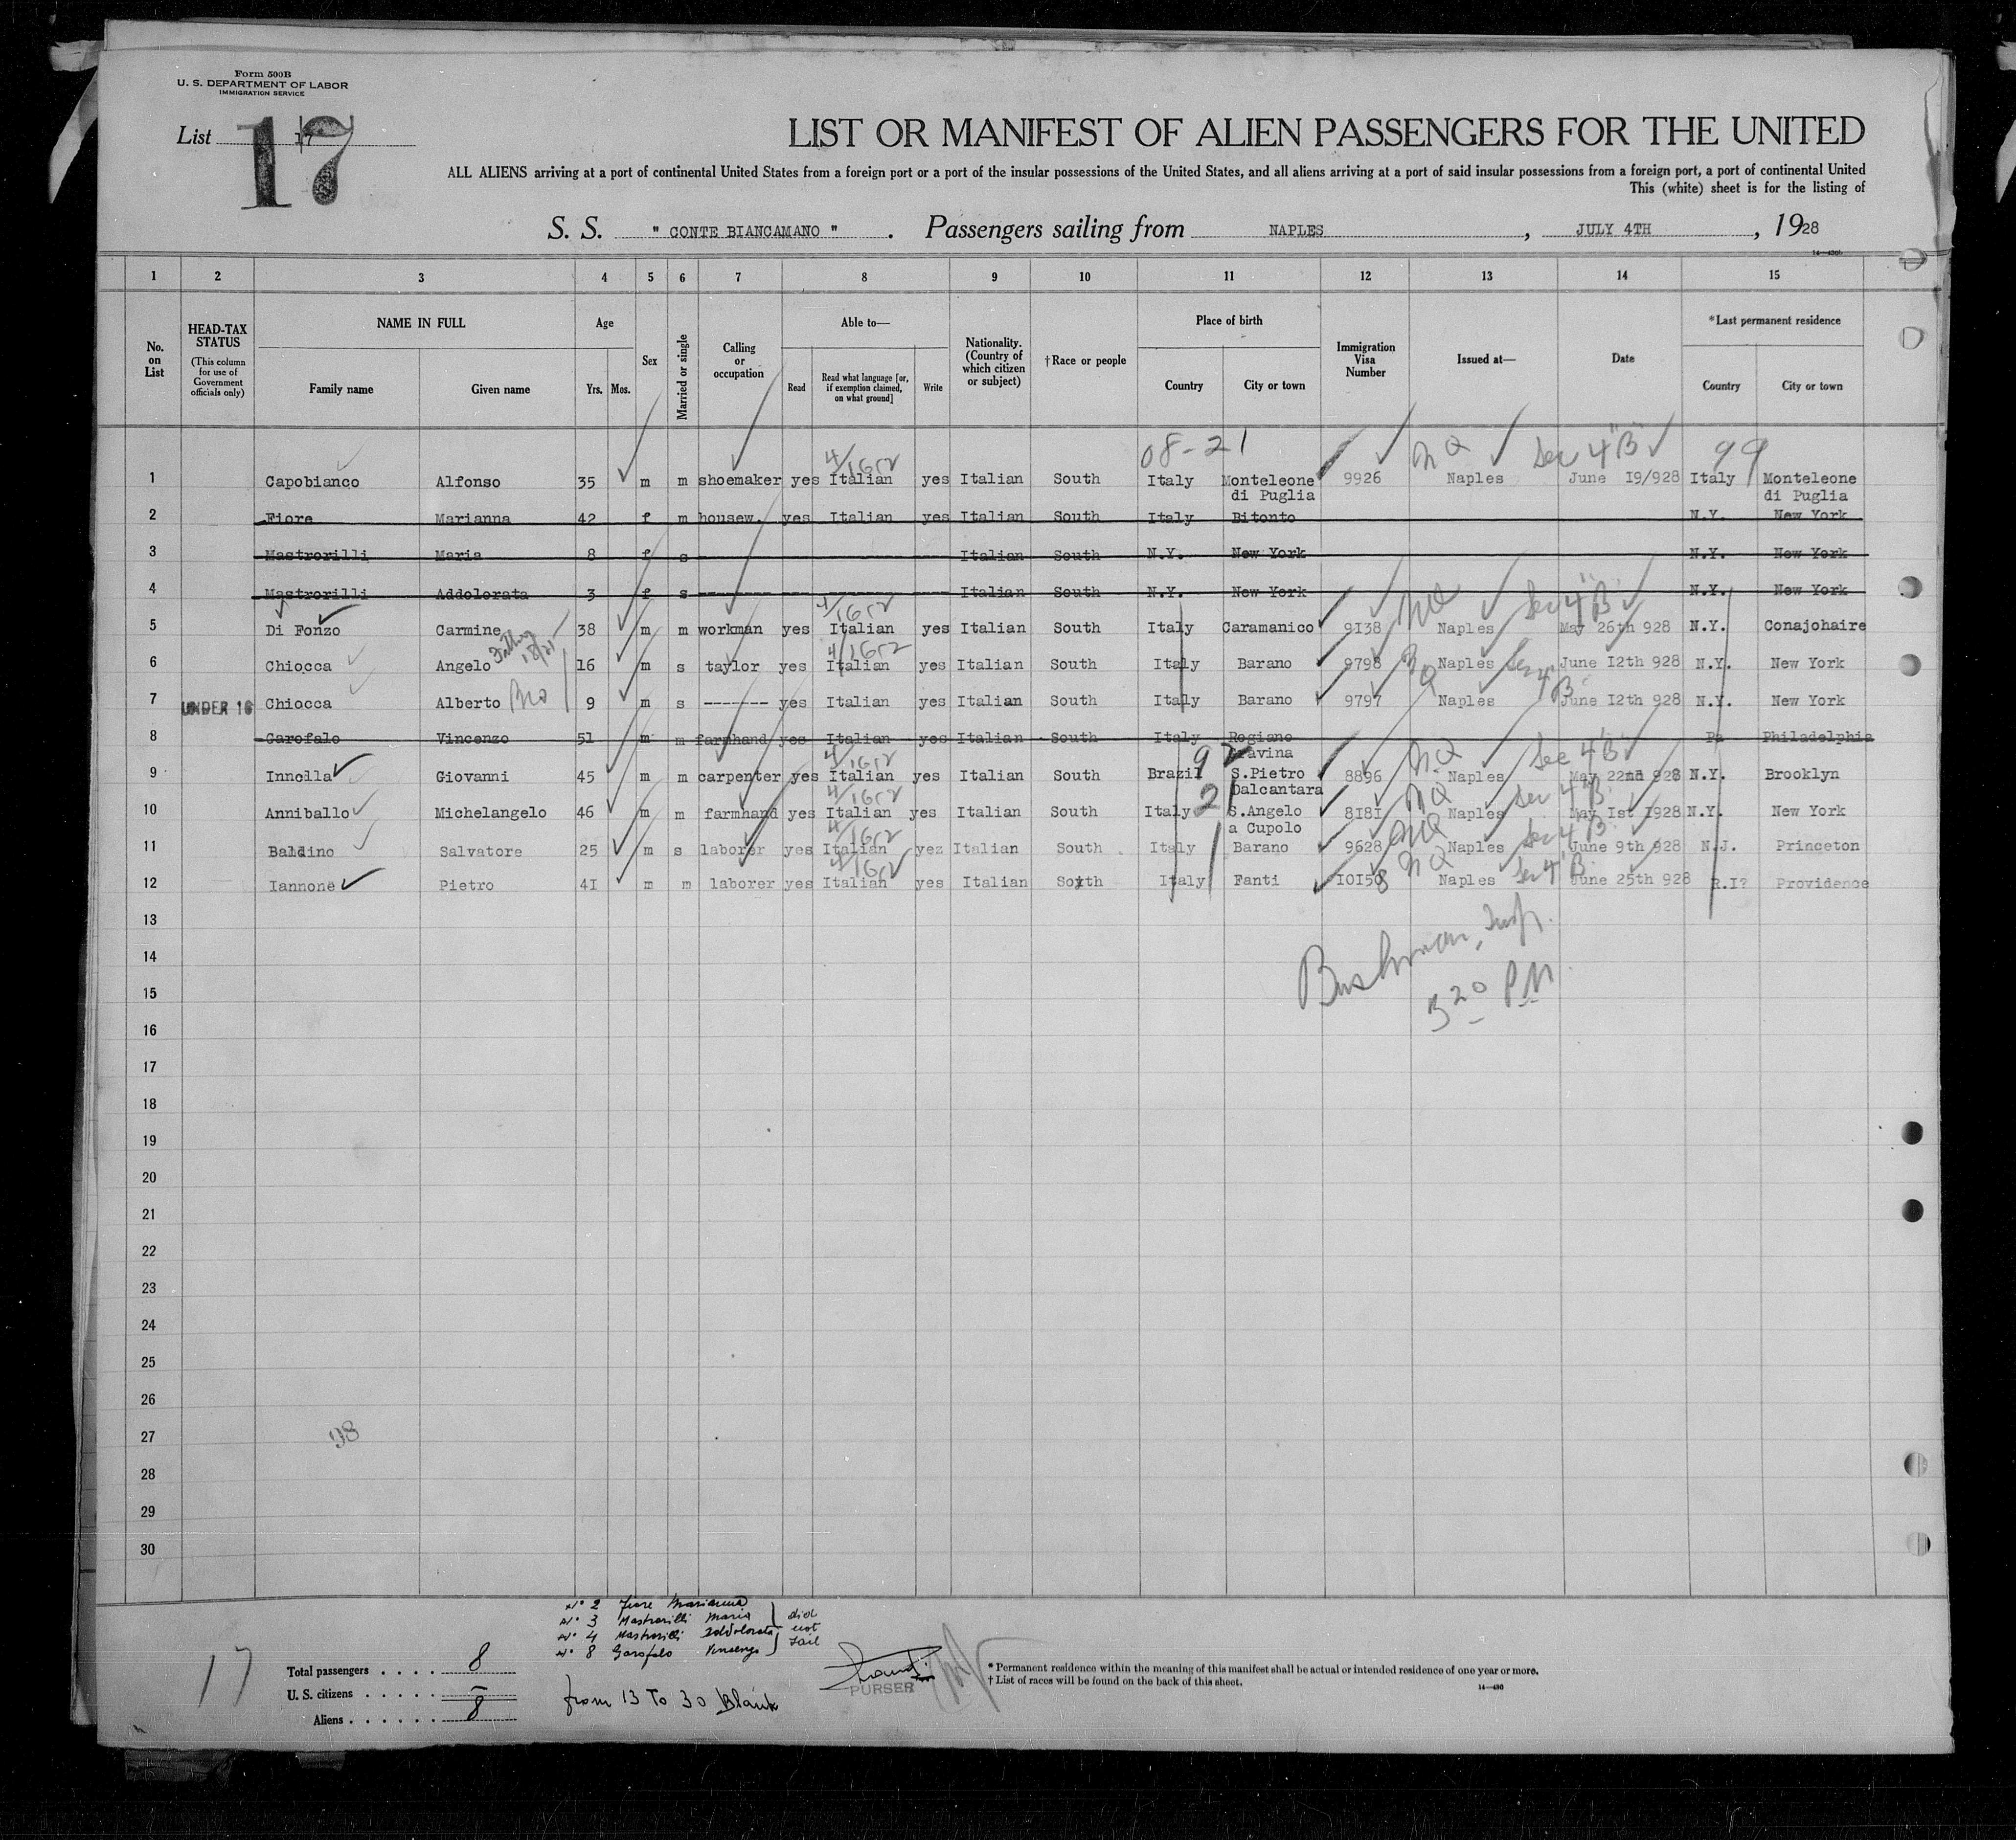 Form 500B
U. S. DEPARTMENT OF LABOR
IMMIGRATION SERVICE
List 17
17
LIST OR MANIFEST OF ALIEN PASSENGERS FOR THE UNITED
ALL ALIENS arriving at a port of continental United States from a foreign port or a port of the insular possessions of the United States, and all aliens arriving at a port of said insular possessions from a foreign port, a port of continental United
This (white) sheet is for the listing of
S. S. " CONTE BIANCAMANO " . Passengers sailing from NAPLES , JULY 4TH , 1928
14—430b
1 2 3 4 5 6 7 8 9 10 11 12 13 14 15
No. on List
HEAD-TAX STATUS (This column for use of Government officials only)
NAME IN FULL
Family name Given name
Age
Yrs. Mos.
Sex
Married or single
Calling or occupation
Able to—
Read Read what language [or, if exemption claimed, on what ground] Write
Nationality. (Country of which citizen or subject)
†Race or people
Place of birth
Country City or town
Immigration Visa Number
Issued at—
Date
*Last permanent residence
Country City or town
08-21 NQ Sec 4 "B" 99
4/1612
1 Capobianco Alfonso 35 m m shoemaker yes Italian yes Italian South Italy Monteleone di Puglia 9926 Naples June I9/928 Italy Monteleone di Puglia
2 Fiore Marianna 42 f m housew. yes Italian yes Italian South Italy Bitonto N.Y. New York
3 Mastrorilli Maria 8 f s Italian South N.Y. New York N.Y. New York
4 Mastrorilli Addolorata 3 f s Italian South N.Y. New York N.Y. New York
4/1612 NQ Sec 4 "B"
5 Di Fonzo Carmine 38 m m workman yes Italian yes Italian South Italy Caramanico 9I38 Naples May 26th 928 N.Y. Conajohaire
4/1612
6 Chiocca Angelo I6 m s taylor yes Italian yes Italian South Italy Barano 9798 NQ Naples Sec 4 B June I2th 928 N.Y. New York
7 UNDER 16 Chiocca Alberto 9 m s ------- yes Italian yes Italian South Italy Barano 9797 Naples June I2th 928 N.Y. New York
8 Garofalo Vincenzo 5I m m farmhand yes Italian yes Italian South Italy Rogiano Gravina Pa Philadelphia
4/1612 92 NQ Sec 4 "B"
9 Innella Giovanni 45 m m carpenter yes Italian yes Italian South Brazil S.Pietro Dalcantara 8896 Naples May 22nd 928 N.Y. Brooklyn
4/1612 21 NQ Sec 4 "B"
10 Anniballo Michelangelo 46 m m farmhand yes Italian yes Italian South Italy S.Angelo a Cupolo 8I8I Naples May Ist I928 N.Y. New York
4/1612 NQ Sec 4 B
11 Baldino Salvatore 25 m s laborer yes Italian yez Italian South Italy Barano 9628 Naples June 9th 928 N.J. Princeton
4/1612 NQ Sec 4 B
12 Iannone Pietro 4I m m laborer yes Italian yes Italian South Italy Fanti I0I508 Naples June 25th 928 R.I? Providence
13
Bushman, Insp.
14
15
3 20 PM
16
17
18
19
20
21
22
23
24
25
26
27
98
28
29
30
N° 2 Fiore Marianna
N° 3 Mastrorilli Maria
N° 4 Mastrorilli Addolorata
N° 8 Garofalo Vincenzo
did not sail
17
Total passengers . . . . 8
U. S. citizens . . . . . –
Aliens . . . . . . 8
from 13 to 30 Blank
PURSER
* Permanent residence within the meaning of this manifest shall be actual or intended residence of one year or more.
† List of races will be found on the back of this sheet.
14—430